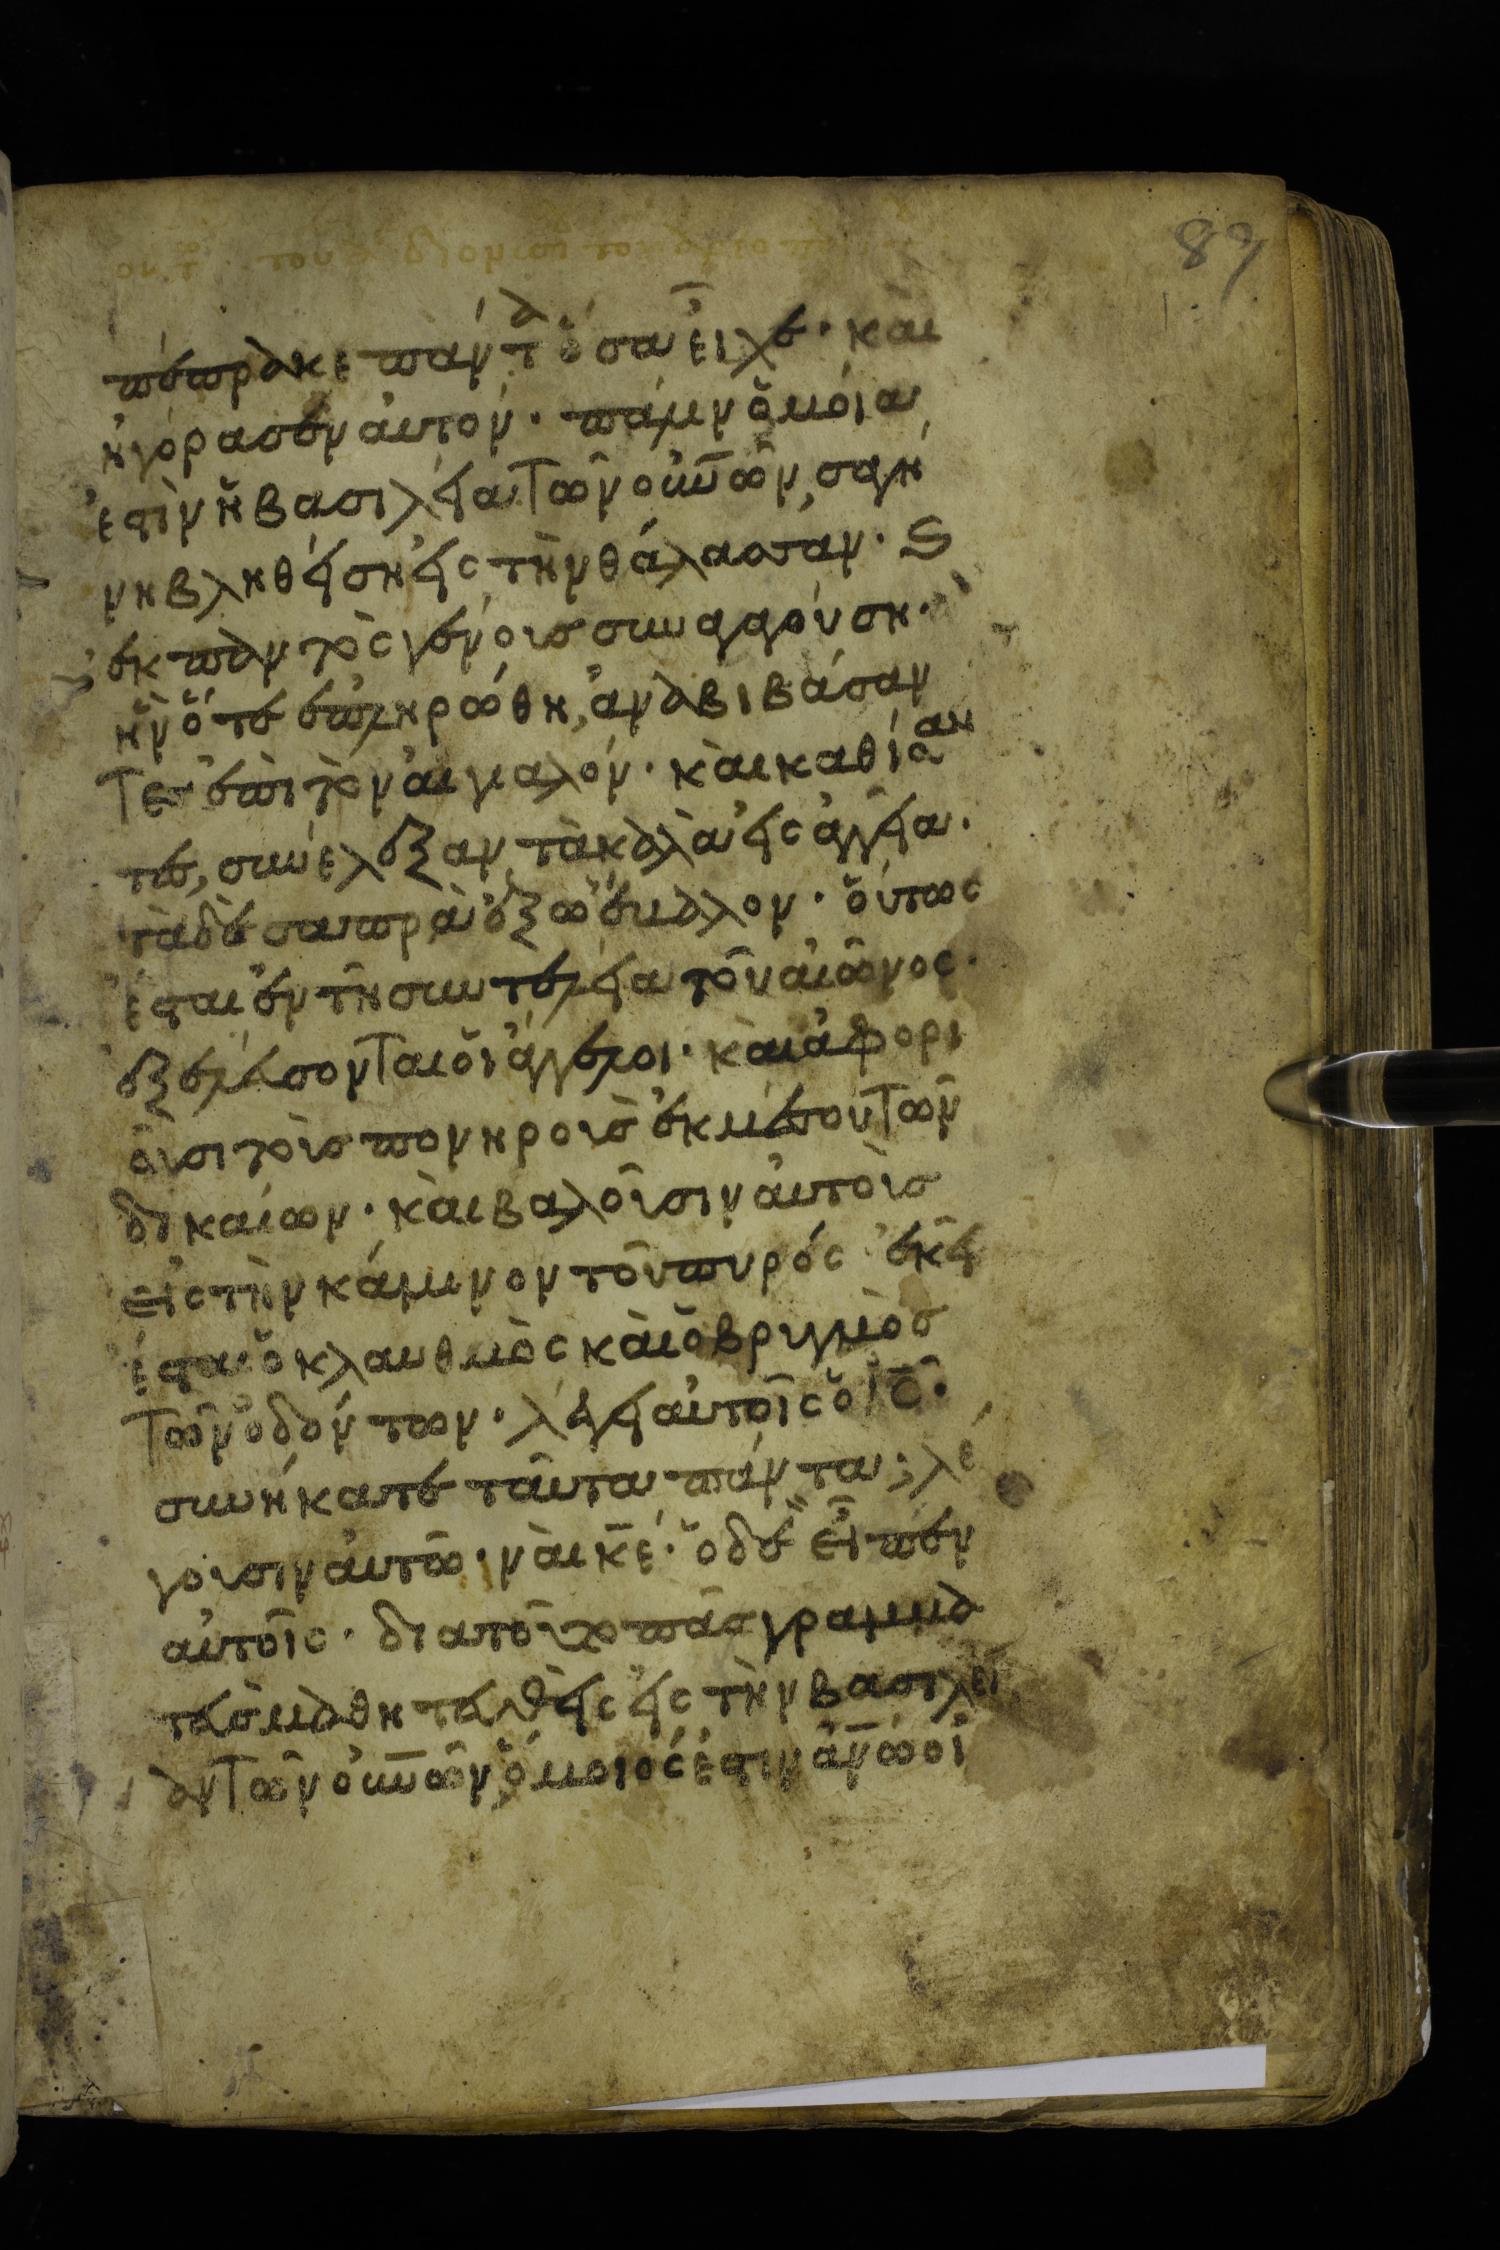 89
πέπρακε πάντα ὅσα εἶχε· καὶ
ἠγόρασεν αυτόν· πάλιν ὁμοία
ἐστὶν ἡ βασιλεία τῶν οὐνῶν, σαγή
νη βληθείση εἰς τὴν θάλασσαν· ϗ
ἐκ παντὸς γένους συναγαγούση·
ἣν ὅτε ἐπληρώθη, ἀναβιβάσαν
τες ἐπὶ τὸν αἰγιαλόν· καὶ καθίσαν
τες, συνέλεξαν τὰ καλὰ εἰς ἀγγεῖα·
τὰ δὲ σαπρὰ ἔξω ἔβαλον· οὕτως
ἔσται ἐν τῆ συντελεία τοῦ αἰῶνος·
ἐξελεύσονται οἱ ἄγγελοι· καὶ ἀφορι
οῦσι τοὺς πονηροὺς ἐκ μέσου τῶν
δικαίων· καὶ βαλοῦσιν αὐτοὺς
εἰς τὴν κάμινον τοῦ πυρός ἐκεῖ
ἔσται ὁ κλαυθμὸς καὶ ὁ βρυγμὸς
τῶν ὀδόντων· λέγει αὐτοῖς ὁ ις·
συνήκατε ταῦτα πάντα; λέ
γουσιν αὐτῶ· ναὶ κε· ὁ δὲ εἶπεν
αὐτοῖς· διατοῦτο πᾶς γραμμα
τεὺς μαθητευθεὶς εἰς τὴν βασιλεί
αν τῶν οὐνῶν, ὅμοιός ἐστιν ἀνω οἰ